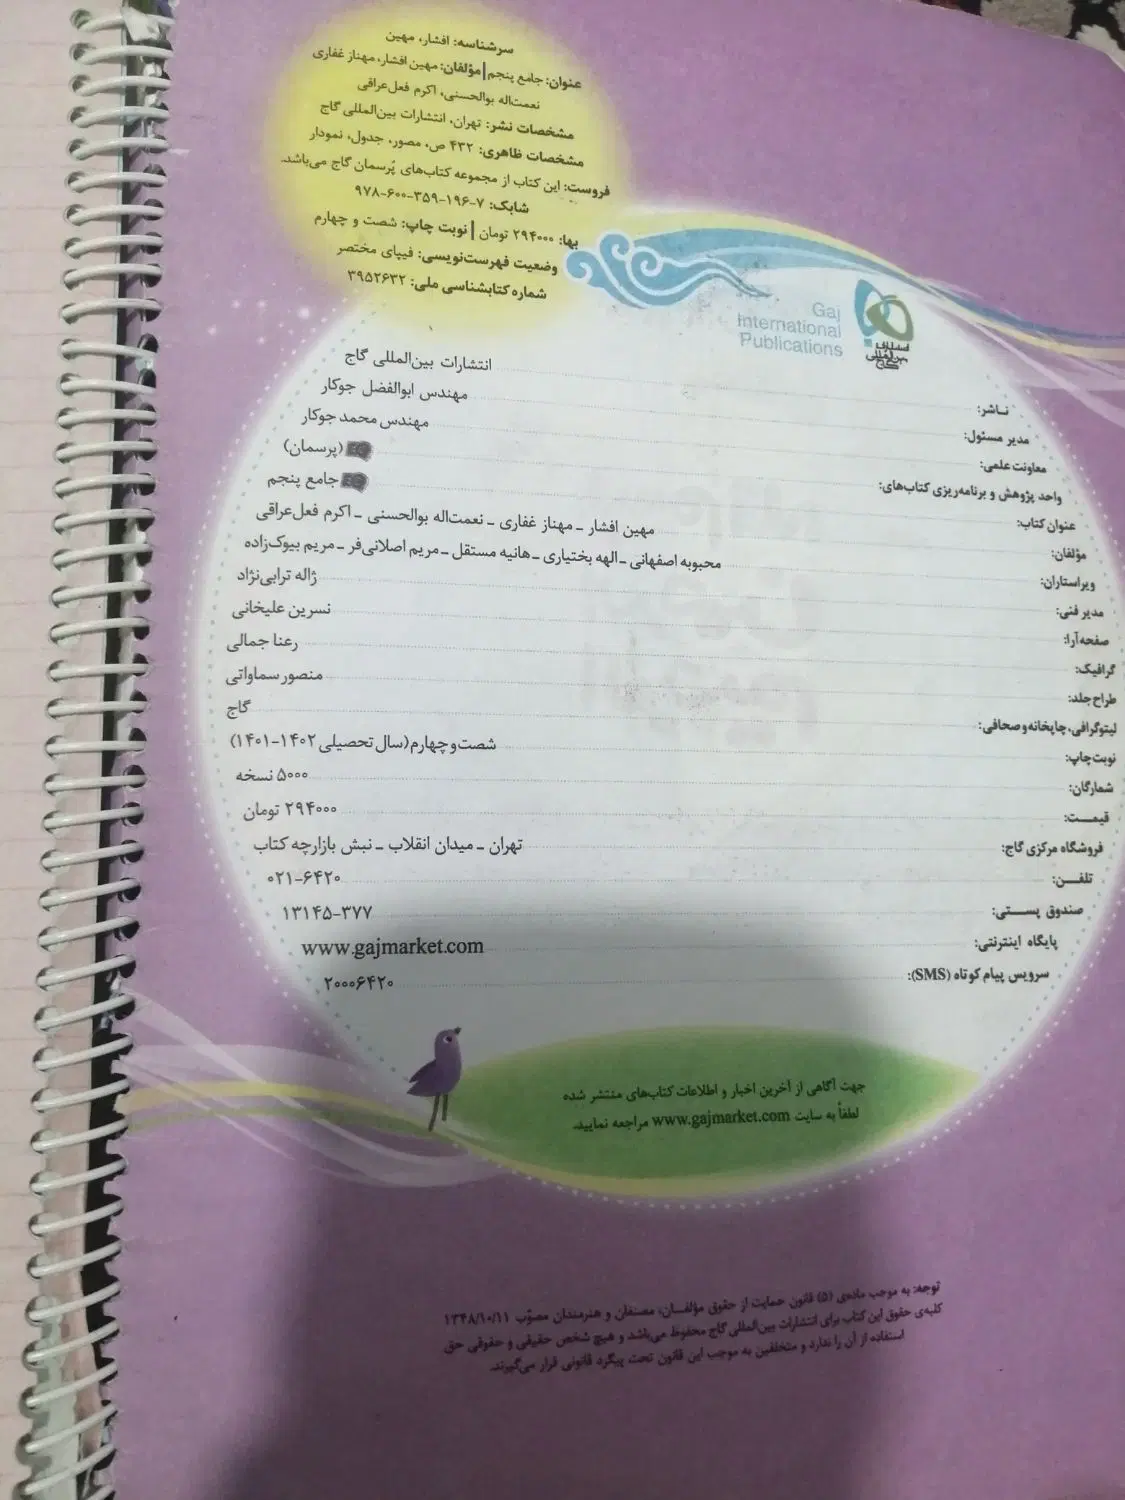 سرشناسه: افشار، مهین
عنوان: جامع پنجم | مؤلفان: مهین افشار، مهناز غفاری
نعمت‌اله بوالحسنی، اکرم فعل‌عراقی
مشخصات نشر: تهران، انتشارات بین‌المللی گاج
مشخصات ظاهری: ۴۳۲ ص، مصور، جدول، نمودار
فروست: این کتاب از مجموعه کتاب‌های پُرسمان گاج می‌باشد.
شابک: ۷-۱۹۶-۳۵۹-۶۰۰-۹۷۸
بها: ۲۹۴۰۰۰ تومان | نوبت چاپ: شصت و چهارم
وضعیت فهرست‌نویسی: فیپای مختصر
شماره کتابشناسی ملی: ۳۹۵۲۶۳۲
Gaj
International
Publications
انتشارات
بین‌المللی
گاج
ناشر: انتشارات بین‌المللی گاج
مدیر مسئول: مهندس ابوالفضل جوکار
معاونت علمی: مهندس محمد جوکار
واحد پژوهش و برنامه‌ریزی کتاب‌های: EQ (پرسمان)
عنوان کتاب: EQ جامع پنجم
مؤلفان: مهین افشار ـ مهناز غفاری ـ نعمت‌اله بوالحسنی ـ اکرم فعل‌عراقی
ویراستاران: محبوبه اصفهانی ـ الهه بختیاری ـ هانیه مستقل ـ مریم اصلانی‌فر ـ مریم بیوک‌زاده
مدیر فنی: ژاله ترابی‌نژاد
صفحه‌آرا: نسرین علیخانی
گرافیک: رعنا جمالی
طراح جلد: منصور سماواتی
لیتوگرافی، چاپخانه و صحافی: گاج
نوبت چاپ: شصت و چهارم (سال تحصیلی ۱۴۰۲-۱۴۰۱)
شمارگان: ۵۰۰۰ نسخه
قیمـــت: ۲۹۴۰۰۰ تومان
فروشگاه مرکزی گاج: تهران ـ میدان انقلاب ـ نبش بازارچه کتاب
تلفـــن: ۰۲۱-۶۴۲۰
صندوق پســـتی: ۱۳۱۴۵-۳۷۷
پایگاه اینترنتی: www.gajmarket.com
سرویس پیام کوتاه (SMS): ۲۰۰۰۶۴۲۰
جهت آگاهی از آخرین اخبار و اطلاعات کتاب‌های منتشر شده
لطفاً به سایت www.gajmarket.com مراجعه نمایید.
توجه: به موجب ماده‌ی (۵) قانون حمایت از حقوق مؤلفـــان، مصنفان و هنرمندان مصوّب ۱۳۴۸/۱۰/۱۱
کلیه‌ی حقوق این کتاب برای انتشارات بین‌المللی گاج محفوظ می‌باشد و هیچ شخص حقیقی و حقوقی حق
استفاده از آن را ندارد و متخلفین به موجب این قانون تحت پیگرد قانونی قرار می‌گیرند.